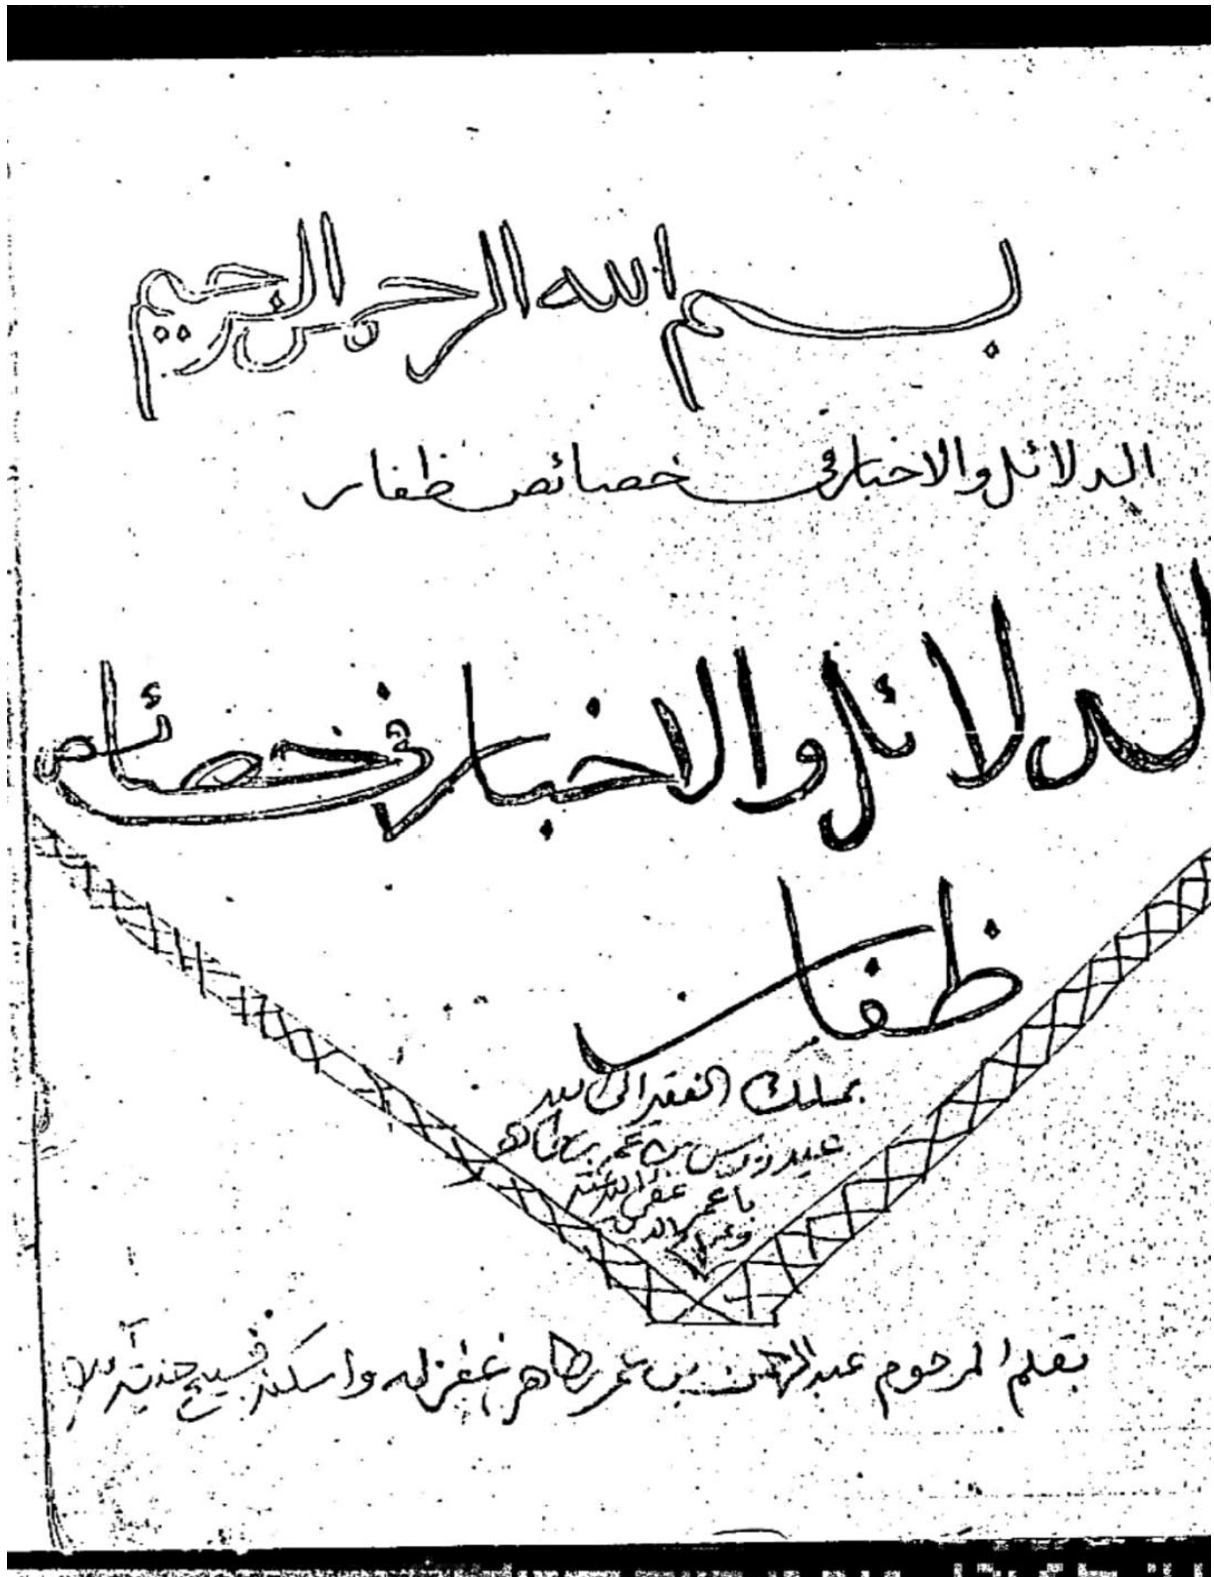 بسم الله الرحمن الرحيم
الدلائل والاخبار في خصائص ظفار
الدلائل والاخبار في خصائص
ظفار
بملك الفقير الى الله
عيدروس بن عمر بن
باعمر عفى الله عنه
وعن والديه
بقلم المرحوم عبدالرحمن بن عمر بن طاهر غفر له واسكنه فسيح جنته آمين